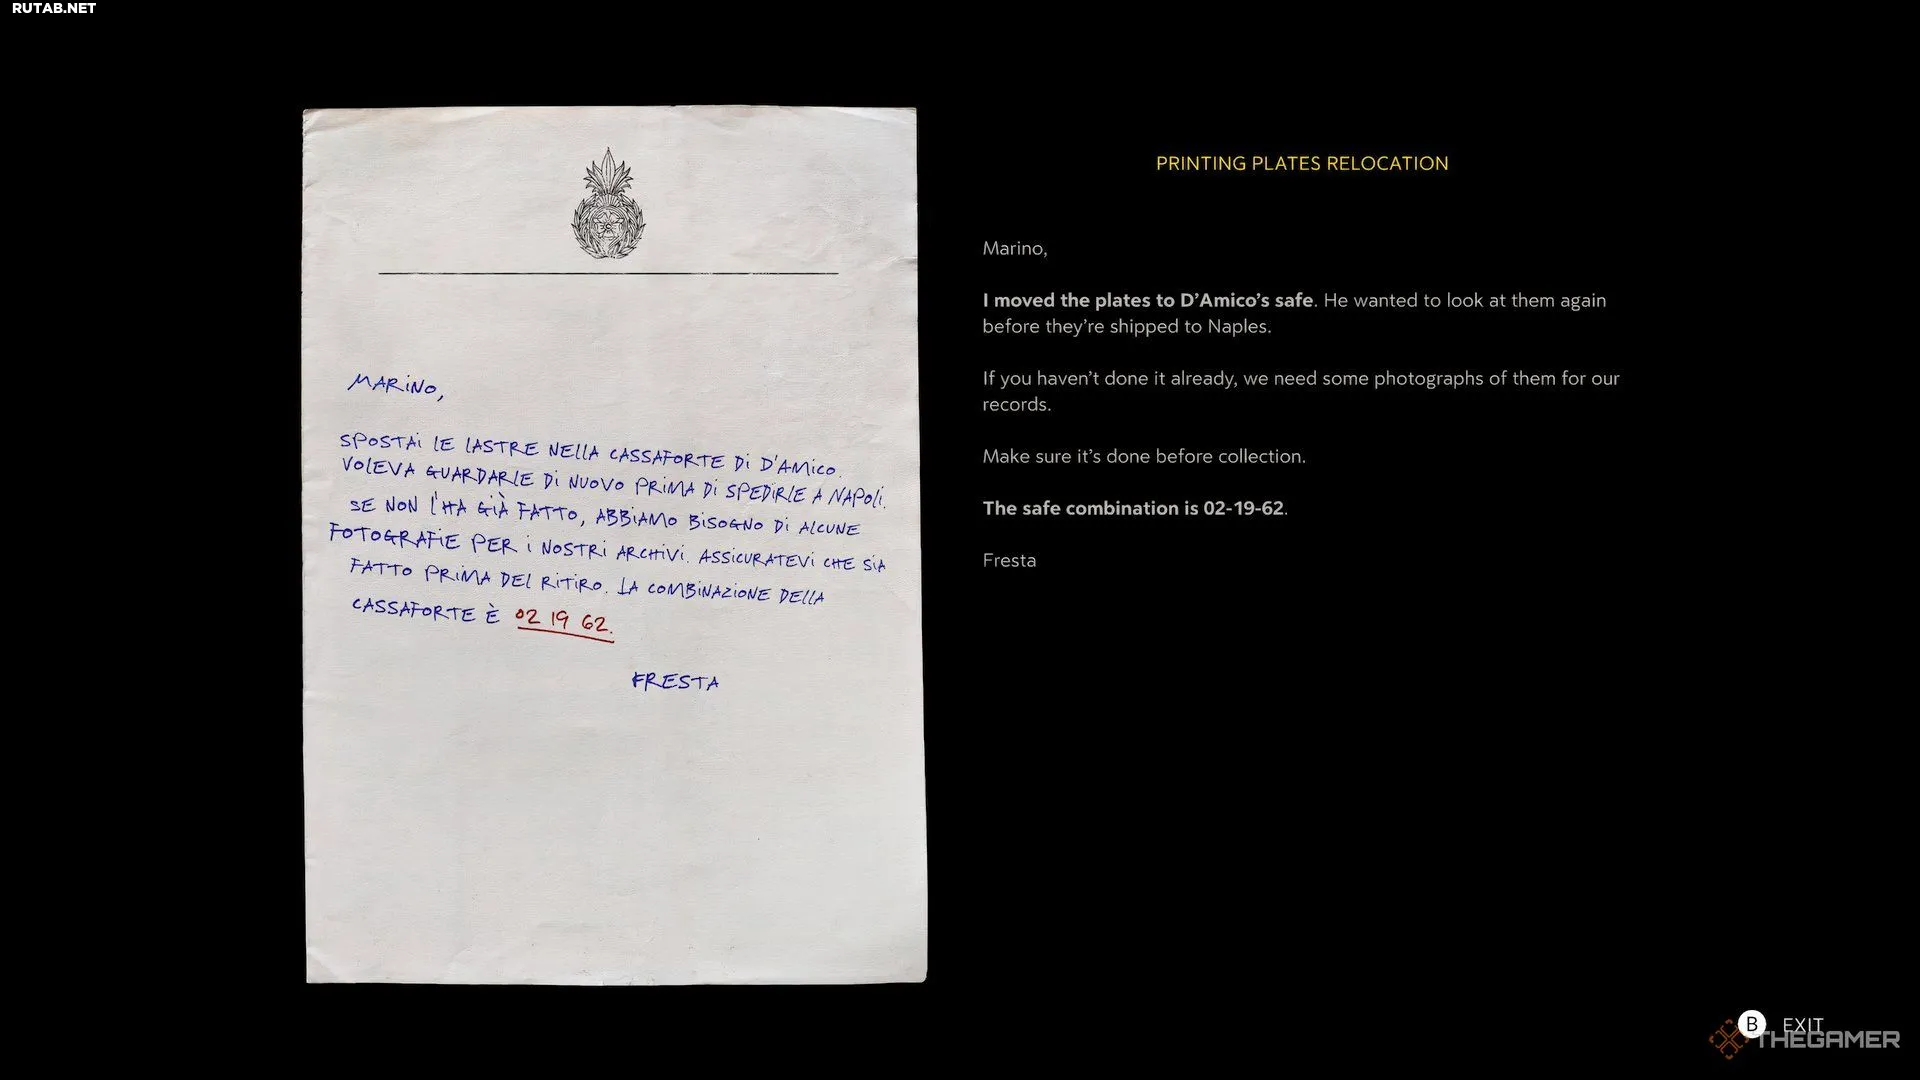 RUTAB.NET
MARINO,
SPOSTAI LE LASTRE NELLA CASSAFORTE DI D'AMICO.
VOLEVA GUARDARLE DI NUOVO PRIMA DI SPEDIRLE A NAPOLI.
SE NON L'HA GIÀ FATTO, ABBIAMO BISOGNO DI ALCUNE
FOTOGRAFIE PER I NOSTRI ARCHIVI. ASSICURATEVI CHE SIA
FATTO PRIMA DEL RITIRO. LA COMBINAZIONE DELLA
CASSAFORTE È 02 19 62.
FRESTA
PRINTING PLATES RELOCATION
Marino,
I moved the plates to D’Amico’s safe. He wanted to look at them again
before they’re shipped to Naples.
If you haven’t done it already, we need some photographs of them for our
records.
Make sure it’s done before collection.
The safe combination is 02-19-62.
Fresta
B EXIT
THEGAMER